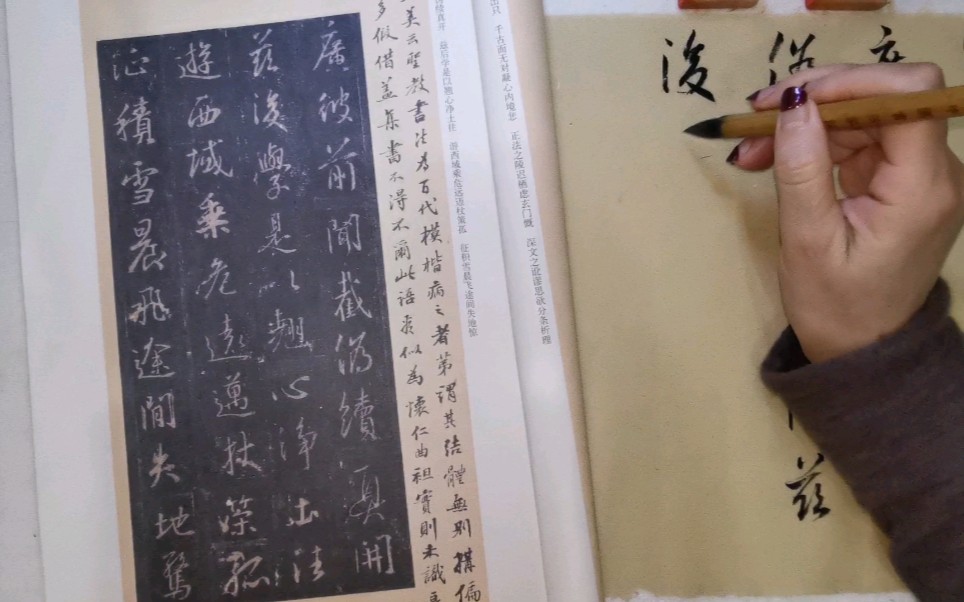 後
茲
出只 千古而无对凝心内境悲 正法之陵迟栖虑玄门慨 深文之讹谬思欲分条析理
续真开 兹后学是以翘心净土往 游西域乘危远迈杖策孤 征积雪晨飞途间失地惊
美云聖教書法為百代模楷病之者第謂其結體無別構偏
多假借蓋集書不得不爾此語似為懷仁曲袒實則未識
廣彼前聞截偽續真開
茲後學是以翹心淨土法
遊西域乘危遠邁杖策孤
征積雪晨飛途間失地驚